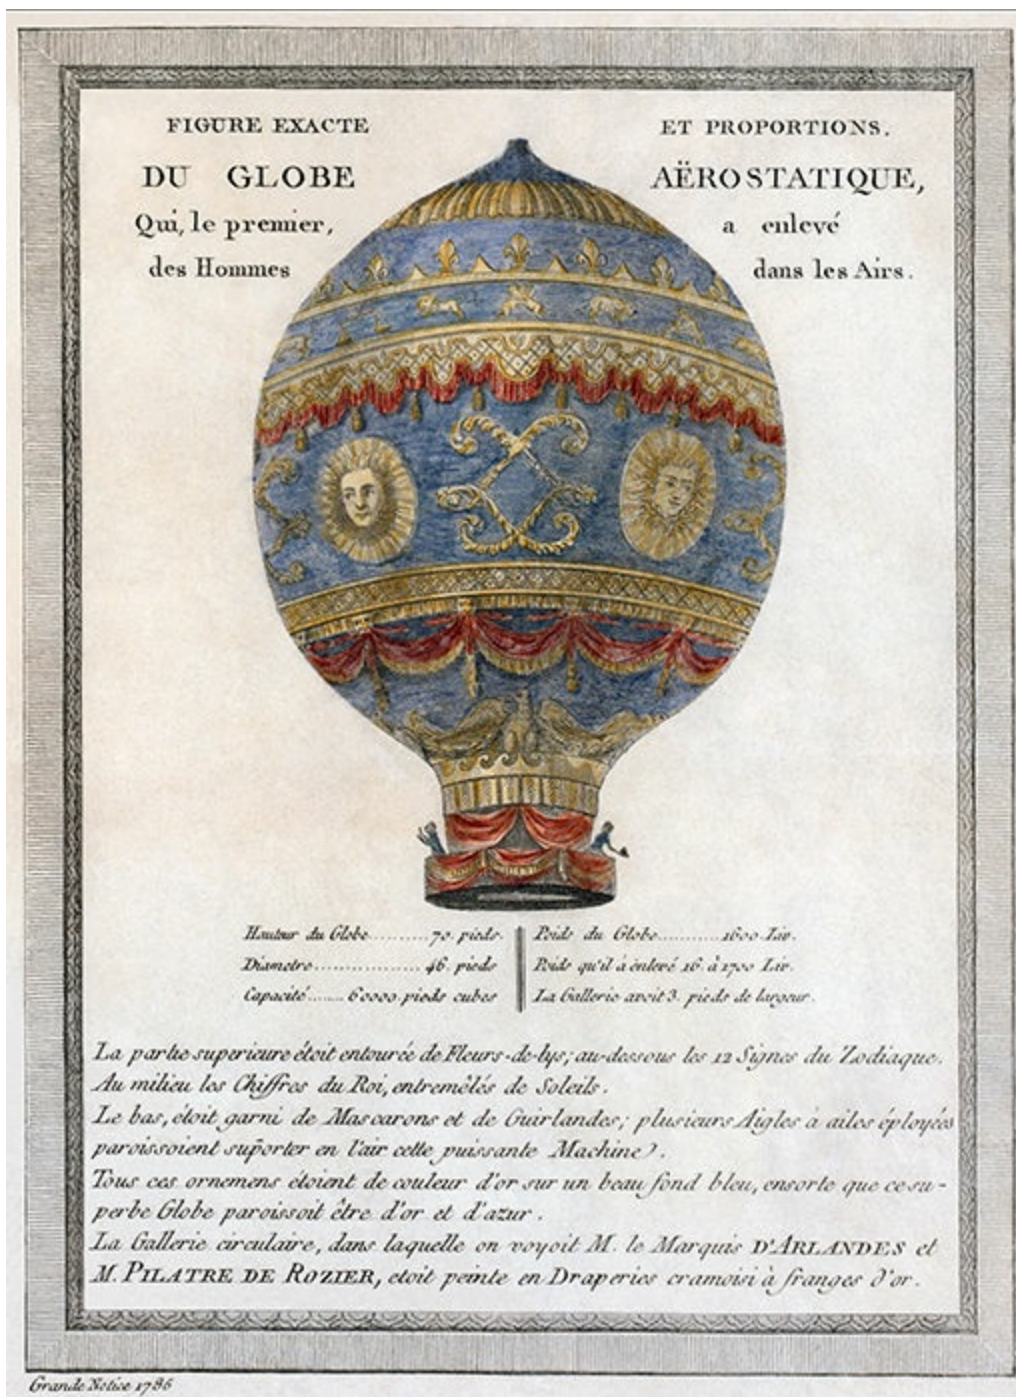 FIGURE EXACTE ET PROPORTIONS.
DU GLOBE AËROSTATIQUE,
Qui, le premier, a enlevé
des Hommes dans les Airs.
Hauteur du Globe..........70. pieds.
Diametre.................. 46. pieds
Capacité....... 60000. pieds cubes
Poids du Globe..........1600. Liv.
Poids qu'il à enlevé 16. à 1700 Liv.
La Gallerie avoit 3. pieds de largeur.
La partie superieure étoit entourée de Fleurs-de-lys; au-dessous les 12 Signes du Zodiaque.
Au milieu les Chiffres du Roi, entremêlés de Soleils.
Le bas, étoit garni de Mascarons et de Guirlandes; plusieurs Aigles à ailes éployées
paroissoient suporter en l'air cette puissante Machine.
Tous ces ornemens étoient de couleur d'or sur un beau fond bleu, ensorte que ce su-
perbe Globe paroissoit être d'or et d'azur.
La Gallerie circulaire, dans laquelle on voyoit M. le Marquis D'ARLANDES et
M. PILATRE DE ROZIER, etoit peinte en Draperies cramoisi à franges d'or.
Grande Notice 1786